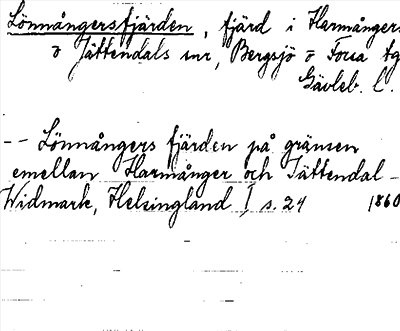 Lönnångersfjärden, fjärd i Harmångers
o Jättendals snr, Bergsjö o Forsa tg
Gävleb. l.
-- Lönnångers fjärden på gränsen
emellan Harmånger och Jättendal -
Widmark, Helsingland I s. 24 1860